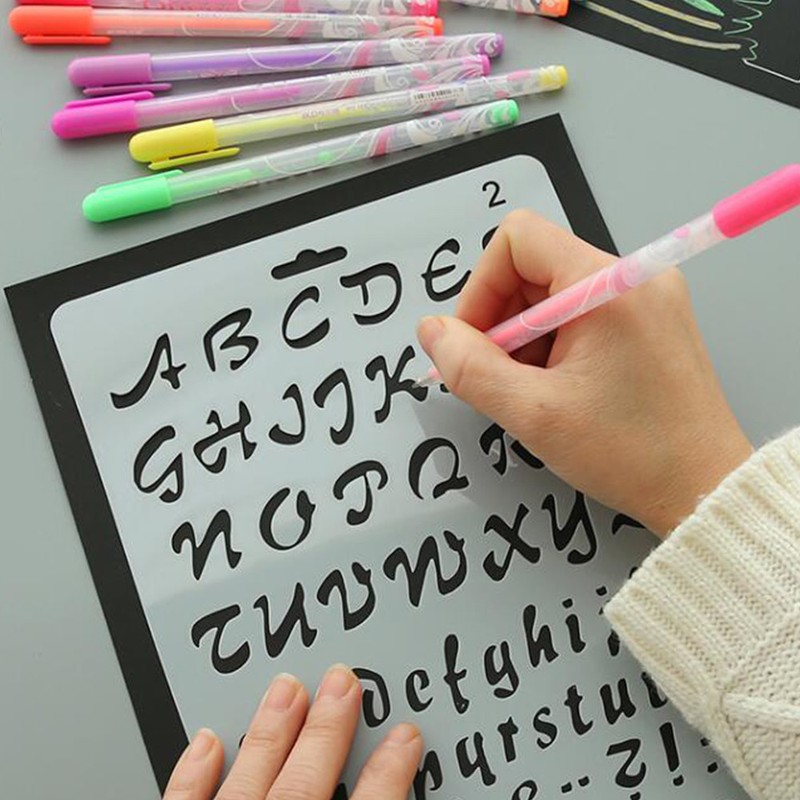 2
A B C D E
G H I J K
N O P Q R
T U V W X Y
d e f g h i
q r s t u
? ! :